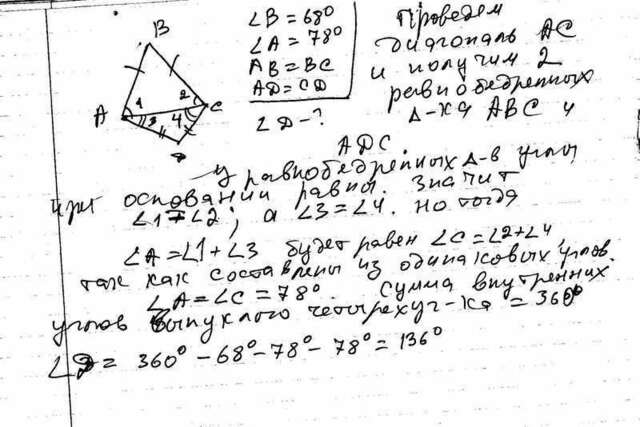 B
A
C
D
1
2
3
4
∠B = 68°
∠A = 78°
AB = BC
AD = CD
∠D - ?
Проведем
диагональ AC
и получим 2
равнобедренных
Δ-ка ABC и
ADC.
У равнобедренных Δ-в углы
при основании равны. Значит
∠1 = ∠2; а ∠3 = ∠4. Но тогда
∠A = ∠1 + ∠3 будет равен ∠C = ∠2 + ∠4,
так как составлены из одинаковых углов.
∠A = ∠C = 78° Сумма внутренних
углов выпуклого четырехуг-ка = 360°
∠D = 360° - 68° - 78° - 78° = 136°